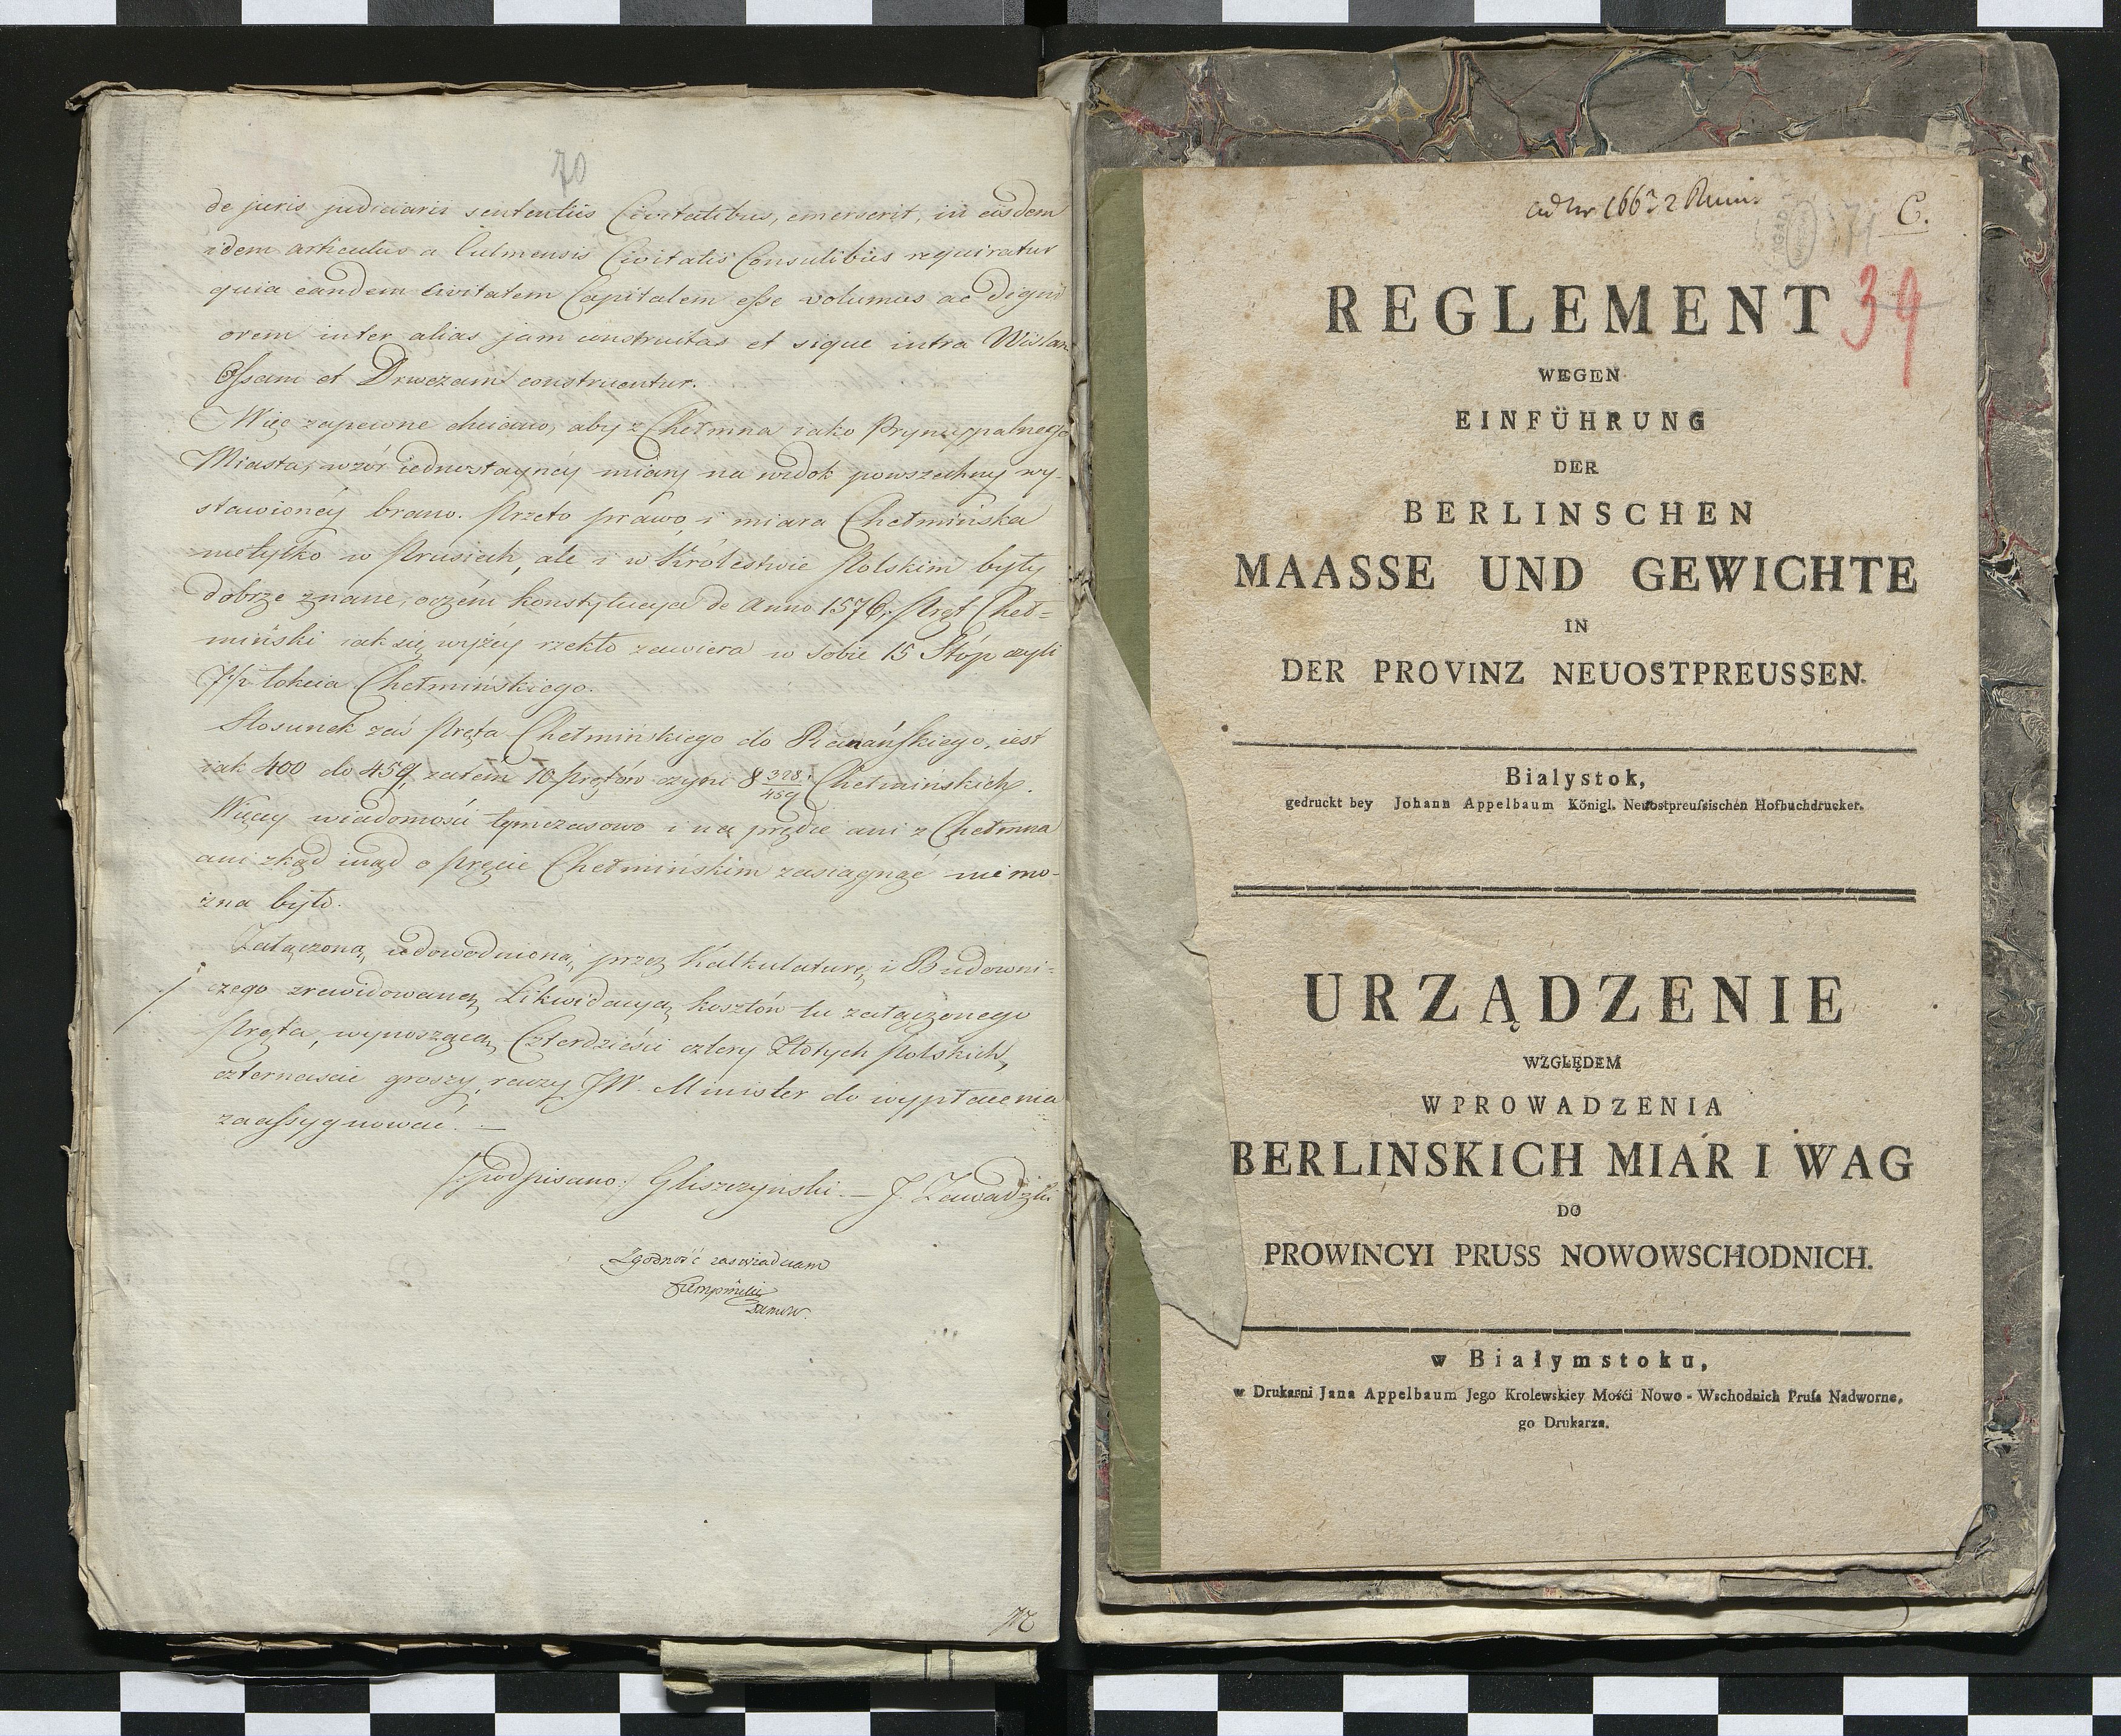 70
de juris judiciarii sententiis Civitatibus, emerserit, in eisdem
idem articulus a Culmensis Civitatis Consulibus requiratur
quia eandem civitatem Capitalem esse volumus ac digni
orem inter alias jam constructas et sique intra Wislam
Ossam et Drwezam construentur.
Więc zapewne chciano, aby z Chełmna iako Pryncypalnego
Miasta, wzór iednostaynéy miary na widok powszechny wy-
stawionéy brano. Przeto prawo i miara Chełmińska
nietylko w Prusiech, ale i w Królestwie Polskim były
dobrze znane, oczém konstytucya de Anno 1576, Pręt Cheł=
miński iak się wyżéy rzekło zawiera w sobie 15 Stóp czyli
7 1/2 łokcia Chełmińskiego.
Stosunek zaś Pręta Chełmińskiego do Renańskiego, iest
iak 400 do 459, zatém 10 prętów czyni 8 328/459 Chełmińskich.
Więcéy wiadomości tymczasowo i na prędce ani z Chełmna
ani zkąd inąd o Pręcie Chełmińskim zasiągnąć nie mo-
żna było.
Załączoną, udowodnioną, przez Kalkulaturę i Budowni-
czego zrewidowaną Likwidacyą kosztów tu załączonego
Pręta, wynoszącą Czterdzieści cztery Złotych Polskich,
czternaście groszy, raczy JW. Minister do wypłacenia
zaassygnować. —
/:podpisano:/ Gliszczyński. — J. Zawadzki
Zgodność zaświadczam
72
C.
39
REGLEMENT
WEGEN
EINFÜHRUNG
DER
BERLINSCHEN
MAASSE UND GEWICHTE
IN
DER PROVINZ NEUOSTPREUSSEN.
Bialystok,
gedruckt bey Johann Appelbaum Königl. Neuostpreufsischen Hofbuchdrucker.
URZĄDZENIE
WZGLĘDEM
WPROWADZENIA
BERLINSKICH MIAR I WAG
DO
PROWINCYI PRUSS NOWOWSCHODNICH.
w Białymstoku,
w Drukarni Jana Appelbaum Jego Krolewskiey Mośći Nowo-Wschodnich Prufs Nadworne,
go Drukarza.